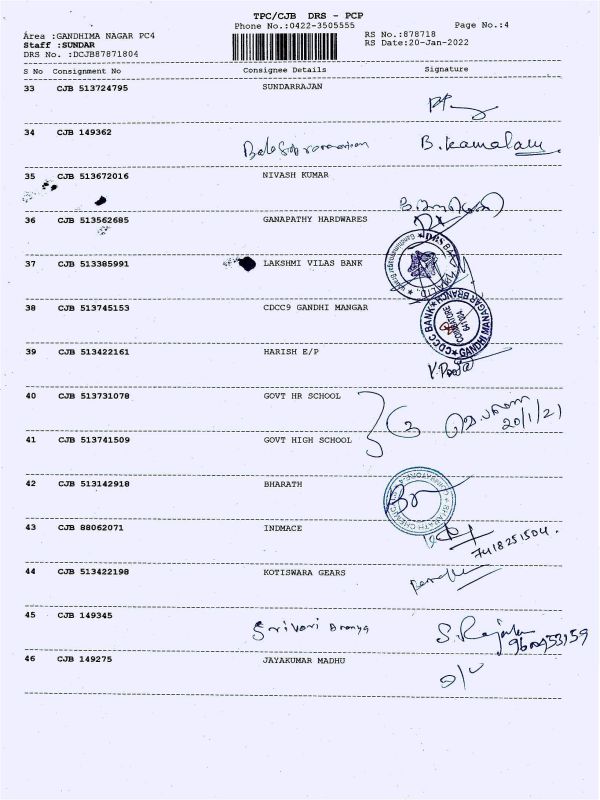 TPC/CJB DRS - PCP
Phone No.:0422-3505555 Page No.:4
Área :GANDHIMA NAGAR PC4 RS No.:878718
Staff :SUNDAR RS Date:20-Jan-2022
DRS No. :DCJB87871804
S No Consignment No Consignee Details Signature
33 CJB 513724795 SUNDARRAJAN
34 CJB 149362 B. Kamalam
35 CJB 513672016 NIVASH KUMAR
36 CJB 513562685 GANAPATHY HARDWARES
37 CJB 513385991 LAKSHMI VILAS BANK
DBS BANK
38 CJB 513745153 CDCC9 GANDHI MANGAR
CDCC BANK GANDHI MANAGAR BRANCH
COIMBATORE
39 CJB 513422161 HARISH E/P
40 CJB 513731078 GOVT HR SCHOOL
20/1/21
41 CJB 513741509 GOVT HIGH SCHOOL
42 CJB 513142918 BHARATH
43 CJB 88062071 INDMACE
7418251504.
44 CJB 513422198 KOTISWARA GEARS
45 CJB 149345 Srivari
46 CJB 149275 JAYAKUMAR MADHU